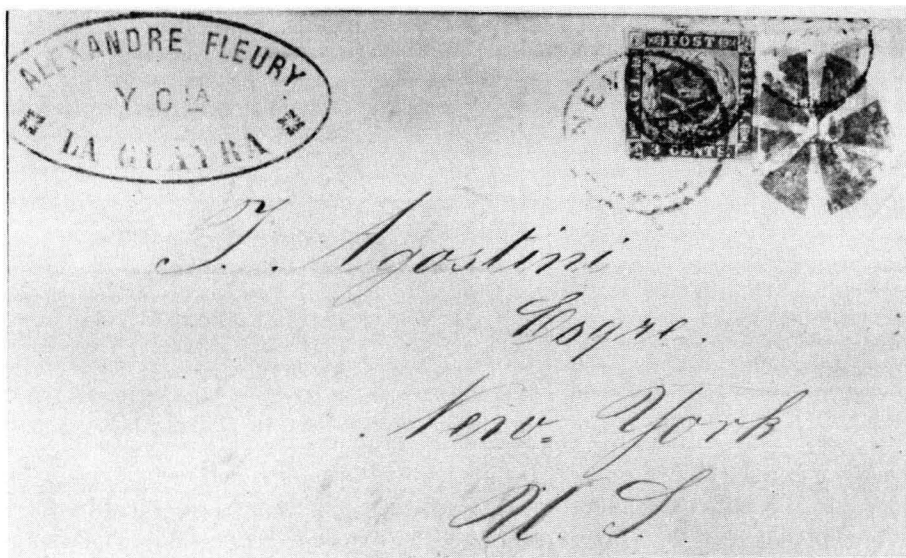 ALEXANDRE FLEURY
Y CIA
LA GUAYRA
NEW
POST
3 CENTS.
J. Agostini
Esqre.
New. York
U. S.